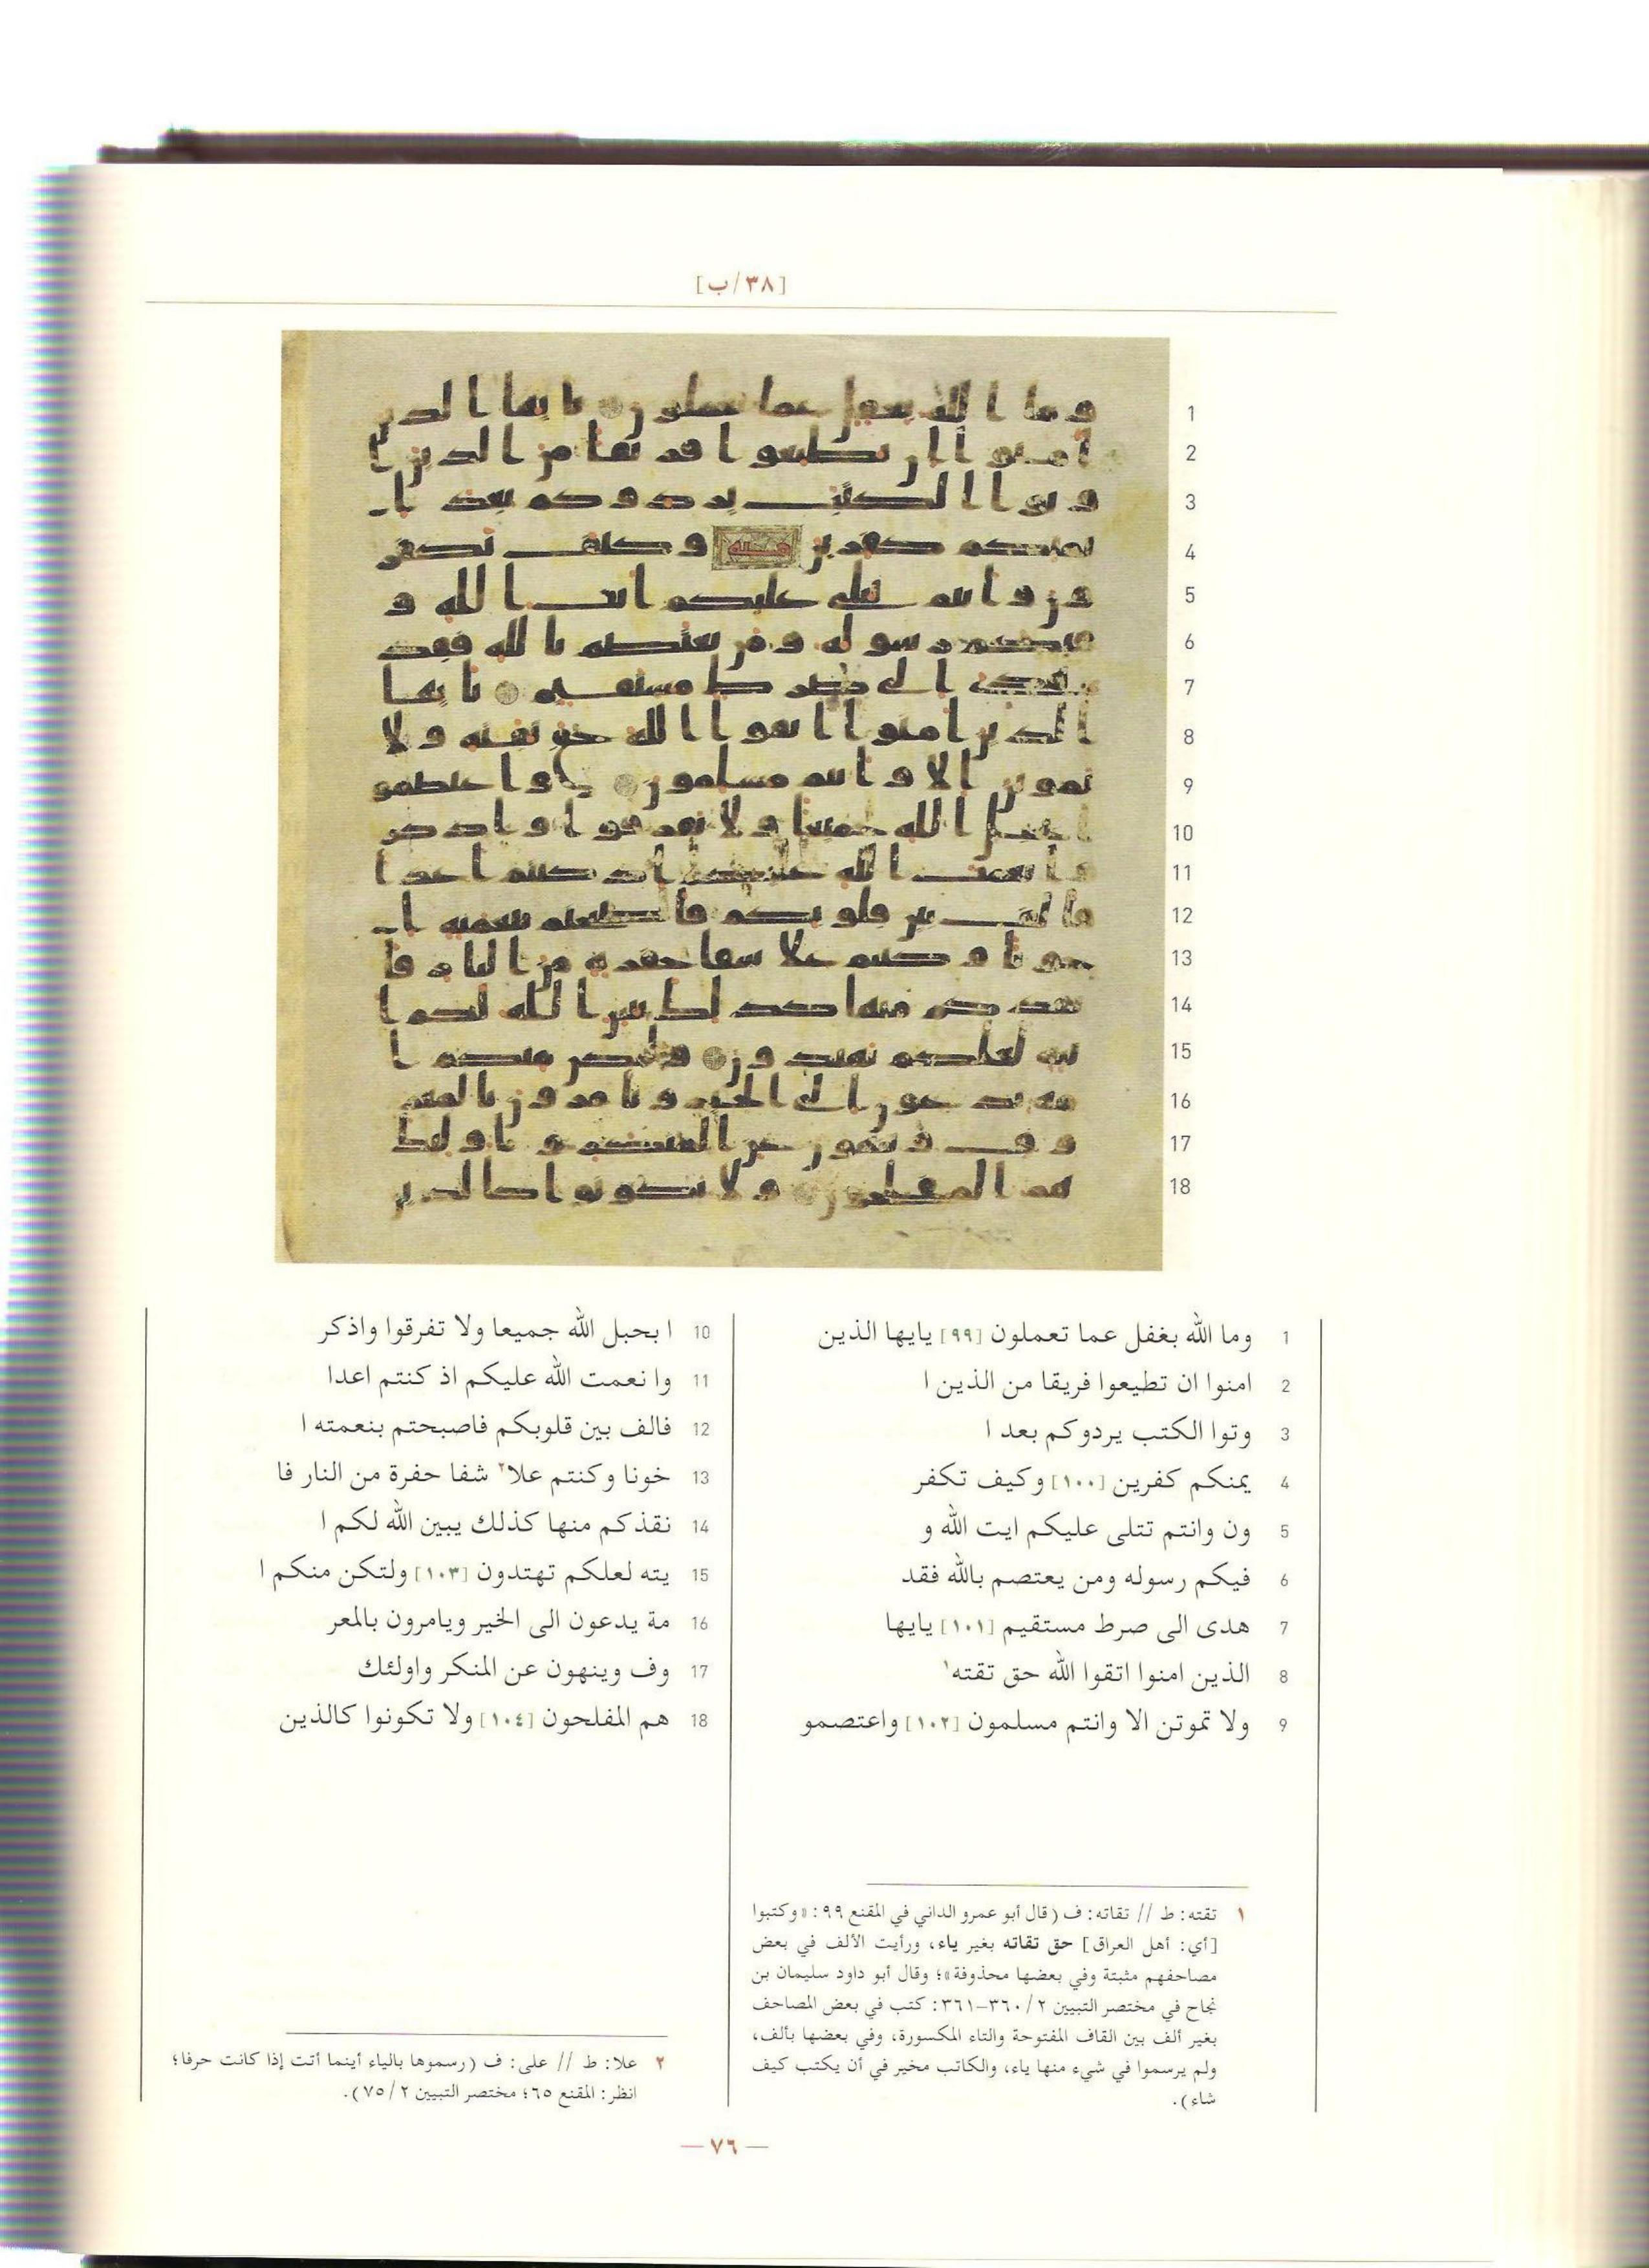 [٣٨/ب]
1 وما الله بغفل عما تعملون [٩٩] يايها الذين
2 امنوا ان تطيعوا فريقا من الذين ا
3 وتوا الكتب يردوكم بعد ا
4 يمنكم كفرين [١٠٠] وكيف تكفر
5 ون وانتم تتلى عليكم ايت الله و
6 فيكم رسوله ومن يعتصم بالله فقد
7 هدى الى صرط مستقيم [١٠١] يايها
8 الذين امنوا اتقوا الله حق تقته١
9 ولا تموتن الا وانتم مسلمون [١٠٢] واعتصمو
10 ا بحبل الله جميعا ولا تفرقوا واذكر
11 وا نعمت الله عليكم اذ كنتم اعدا
12 فالف بين قلوبكم فاصبحتم بنعمته ا
13 خونا وكنتم علا٢ شفا حفرة من النار فا
14 نقذكم منها كذلك يبين الله لكم ا
15 يته لعلكم تهتدون [١٠٣] ولتكن منكم ا
16 مة يدعون الى الخير ويامرون بالمعر
17 وف وينهون عن المنكر واولئك
18 هم المفلحون [١٠٤] ولا تكونوا كالذين
١ تقته: ط // تقاته: ف (قال أبو عمرو الداني في المقنع ٩٩: «وكتبوا
[أي: أهل العراق] حق تقاته بغير ياء، ورأيت الألف في بعض
مصاحفهم مثبتة وفي بعضها محذوفة»؛ وقال أبو داود سليمان بن
نجاح في مختصر التبيين ٢/ ٣٦٠-٣٦١: كتب في بعض المصاحف
بغير ألف بين القاف المفتوحة والتاء المكسورة، وفي بعضها بألف،
ولم يرسموا في شيء منها ياء، والكاتب مخير في أن يكتب كيف
شاء).
٢ علا: ط // على: ف (رسموها بالياء أينما أتت إذا كانت حرفا؛
انظر: المقنع ٦٥؛ مختصر التبيين ٢/ ٧٥).
— ٧٦ —